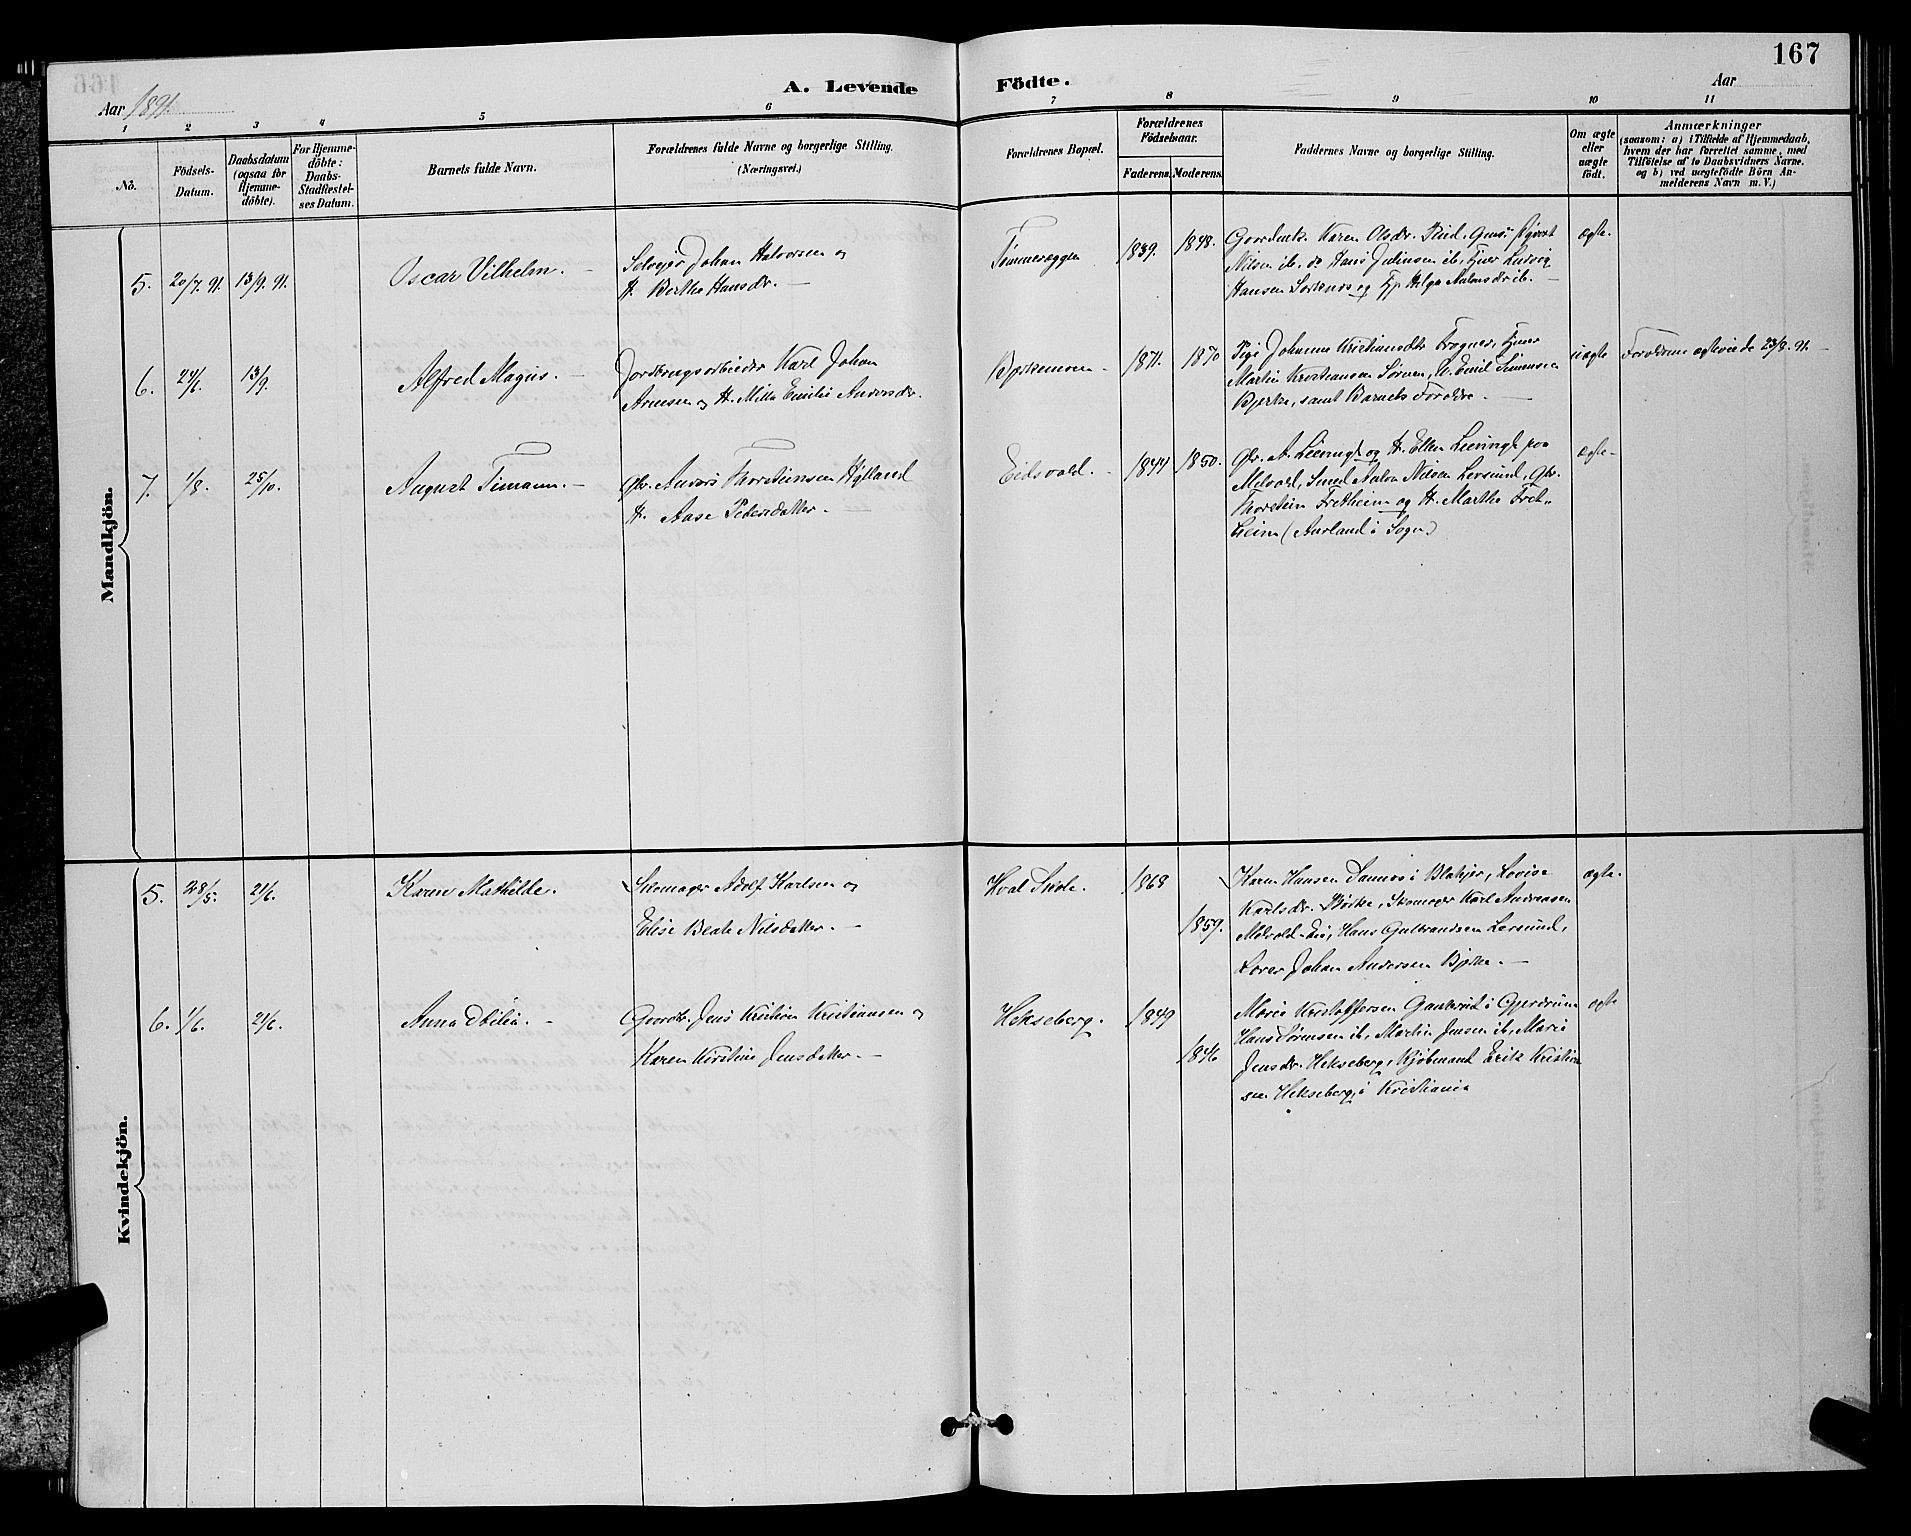 167
Aar 1891.
A. Levende Födte.
Aar
1 2 3 4 5 6 7 8 9 10 11
No.
Födsels-
Datum.
Daabsdatum
(ogsaa for
Hjemme-
döbte).
For Hjemme-
döbte:
Daabs-
Stadfæstel-
ses Datum.
Barnets fulde Navn.
Forældrenes fulde Navne og borgerlige Stilling.
(Næringsvei.)
Forældrenes Bopæl.
Forældrenes
Födselsaar.
Faderens. Moderens.
Faddernes Navne og borgerlige Stilling.
Om ægte
eller
uægte
födt.
Anmærkninger
(saasom: a) i Tilfælde af Hjemmedaab,
hvem der har forrettet samme, med
Tilföielse af to Daabsvidners Navne.
og b) ved uægtefödte Börn An-
melderens Navn m. V.)
Mandkjön.
5. 20/7. 91. 13/9. 91.
Oscar Vilhelm.
Selveier Johan Halvorsen og
H. Berthe Hansdr.
1839. 1848.
Karen Olsdr. Rud,
Nilsen ib. do Hans Julinsen ib, Tjener Ludvig
Hansen og Tjp Helga ib.
ægte.
6. 24/6. 13/9
Alfred Magus.
Jordbrugsarbeider Karl Johan
Arnesen og H. Milla Emilie Andersdr.
Bjerkemoen
1871. 1870
Pige Johanne Kristiansdtr Frogner, Tjener
Martin Kristiansen, U. Emil Simensen
Bjerke, samt Barnets Forældre.
uægte
Forældrene ægteviede 23/8. 91.
7. 1/8. 25/10.
August Timann.
Gbr. Anders Thorsteinsen Hylland
H. Aase Pedersdatter.
Eidsvold.
1844 1850.
Gbr. A. og H. Ellen paa
Melvold, Smed Nilsen Lersund, Gbr.
Thorstein Fretheim og H. Marthe Fret-
heim (Aurland i Sogn)
ægte
Kvindekjön.
5. 28/5. 21/6.
Karen Mathilde.
Skomager Adolf Karlsen og
Elise Beate Nilsdatter.
Hval Skole.
1868
1859.
Karen Hansen i Blakjer, Lovise
Karlsdr., Skomager Karl Andreasen
Melvold-eie, Hans Gulbrandsen Lersund,
Lærer Johan Andersen Bjerke.
ægte.
6. 1/6. 21/6.
Anna
Gaardbr. Jens Kristian Kristiansen og
Karen Kirstine Jensdatter.
Hekseberg.
1849
1846
Maria Kristoffersen i Gjerdrum
Hans Sørensen ib, Martin Jensen ib, Marie
Jensdr. Hekseberg, Kjøbmand Erik Kristian
sen Hekseberg, i Kristiania
ægte